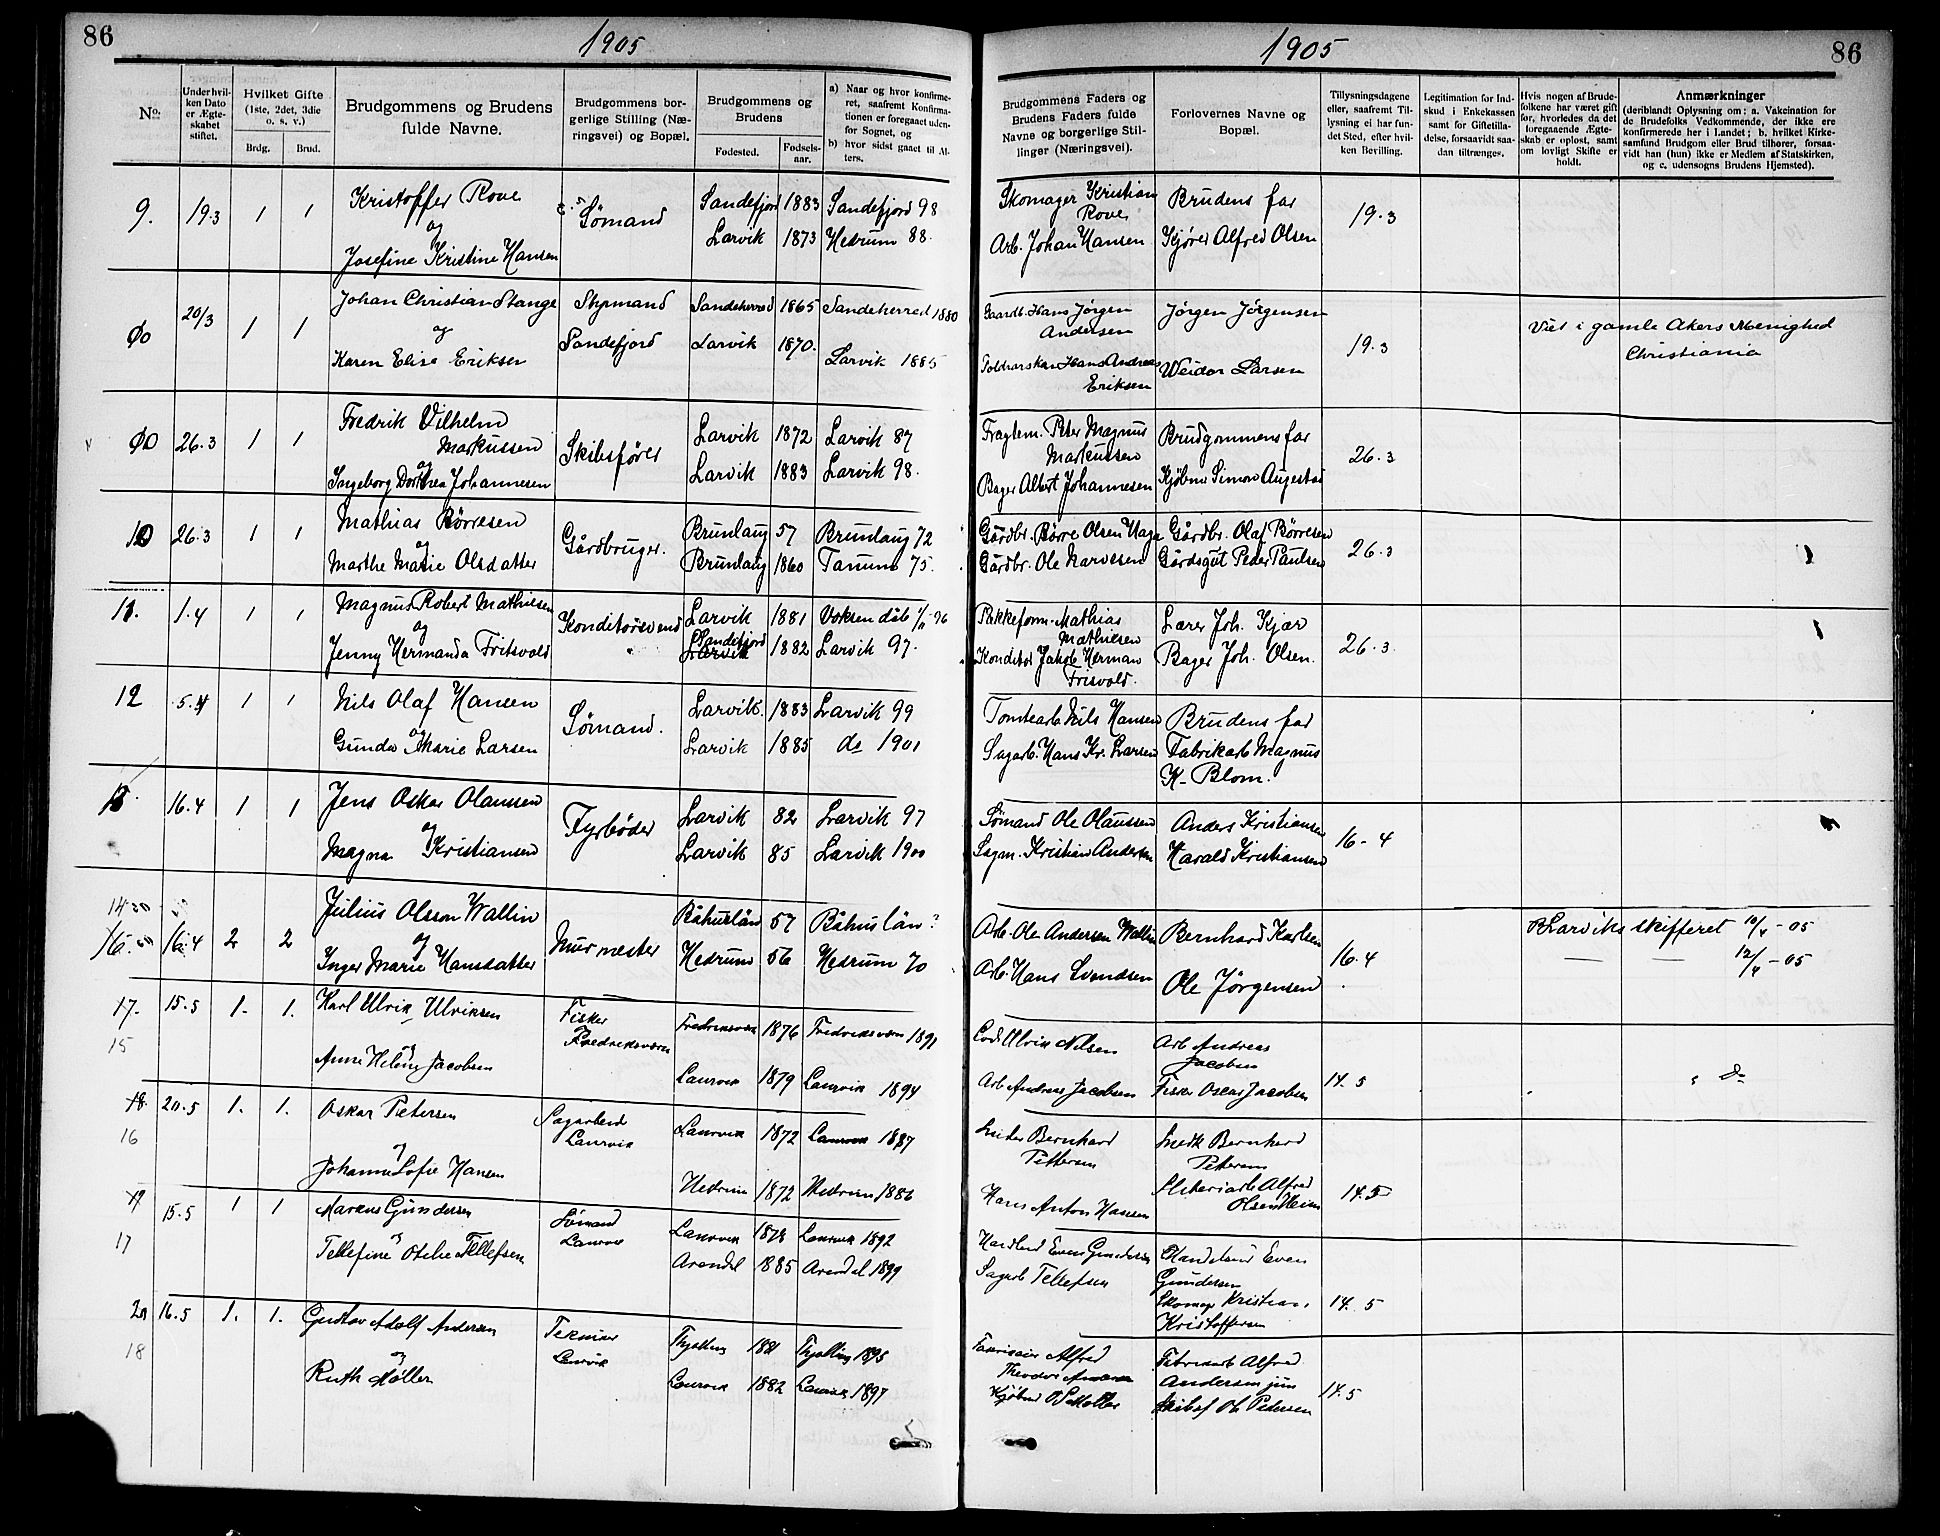 86
1905
1905
86
No.
Under hvil-
ken Dato
er Ægte-
skabet
stiftet.
Hvilket Gifte
(1ste, 2det, 3die
o. s. v.)
Brdg.
Brud.
Brudgommens og Brudens
fulde Navne.
Brudgommens bor-
gerlige Stilling (Næ-
ringsvei) og Bopæl.
Brudgommens og
Brudens
Fødested.
Fødsels-
aar.
a) Naar og hvor konfirme-
ret, saafremt Konfirma-
tionen er foregaaet uden-
for Sognet, og
b) hvor sidst gaaet til Al-
ters.
Brudgommens Faders og
Brudens Faders fulde
Navne og borgerlige Stil-
linger (Næringsvei).
Forlovernes Navne og
Bopæl.
Tillysningsdagene
eller, saafremt Til-
lysning ei har fun-
det Sted, efter hvil-
ken Bevilling.
Legitimation for Ind-
skud i Enkekassen
samt for Giftetilla-
delse, forsaavidt saa-
dan tiltrænges.
Hvis nogen af Brude-
folkene har været gift
før, hvorledes da det
foregaaende Ægte-
skab er opløst, samt
om lovligt Skifte er
holdt.
Anmærkninger
(deriblandt Oplysning om: a. Vakcination for
de Brudefolks Vedkommende, der ikke ere
konfirmerede her i Landet; b. hvilket Kirke-
samfund Brudgom eller Brud tilhører, forsaa-
vidt han (hun) ikke er Medlem af Statskirken,
og c. udensogns Brudens Hjemsted).
9. 19.3 1 1 Kristoffer Rove Sømand Sandefjord 1883 Sandefjord 98 Skomager Kristian Brudens far 19.3
og Rove
Josefine Kristine Hansen Larvik 1873 Hedrum 88. Arb. Johan Hansen Kjører Alfred Olsen
20/3 1 1 Johan Christian Stange Styrmand Sandeherred 1865 Sandeherred 1880 Gaardb. Hans Jørgen Jørgen Jørgensen 19.3 Viet i gamle Akers Menighed
og Andersen Christiania
Karen Elise Eriksen Sandefjord Larvik 1870. Larvik 1885 Hans Andreas
Eriksen Weidar Larsen
26.3 1 1 Fredrik Vilhelm Skibsfører Larvik 1872 Larvik 87 Fragtem. Peter Magnus Brudgommens far 26.3
Markussen Markussen
og
Ingeborg Dorthea Johannesen Larvik 1883 Larvik 98. Bager Albert Johannesen Kjøbm. Simon Augestad
10 26.3 1 1 Mathias Børresen Gårdbruger. Brunlaug 57 Brunlaug 72 Gårdbr. Børre Olsen Haga Gårdbr. Olaf Børresen 26.3
og
Marthe Marie Olsdatter Brunlaug 1860 Tanum 75. Gårdbr. Ole Narvesen Gårdsgut Peder Paulsen
11. 1.4 1 1 Magnus Robert Mathiesen Konditorsvend Larvik 1881 Voksen døb Pakkeform. Mathias Lærer Joh. Kjær 26.3
og Mathiesen
Jenny Hermanda Fritsvold Sandefjord 1882 Larvik 97. Konditor Jakob Herman Bager Joh. Olsen.
Larvik Frisvold.
12 5.4 1 1 Nils Olaf Hansen Sømand. Larvik. 1883 Larvik 99 Tomtearb Nils Hansen Brudens far
og
Gunda Marie Larsen Larvik 1885 do 1901 Sagarb. Hans Kr. Larsen Fabrikarb Magnus
K- Blom.
16.4 1 1 Jens Oskar Olaussen Fyrbøder Larvik 82 Larvik 97 Sømand Ole Olaussen Anders Kristiansen 16-4
og
Magna Kristiansen Larvik 85 Larvik 1900 Sagm. Kristian Andersen Harald Kristiansen
14
16.4 2 2 Julius Olsson Wallin Murmester Båhuslän 57 Båhuslän? Arb. Ole Andersen Wallin Bernhard Karlsen 16.4 Larviks skifteret 10/4-05
og
Inger Marie Hansdatter Hedrum 56 Hedrum 70 Arb. Hans Svendsen Ole Jørgensen — — 12/4-05
17. 15.5 1. 1. Karl Ulrik Ulriksen Fisker Fredriksværn 1876 Fredriksværn 1891 Lods Ulrik Nilsen Arb Andreas 14.5
15 og Fredriksværn Jacobsen
Anne Heline Jacobsen Laurvik 1879 Laurvik 1894 Arb Andreas Jacobsen Fisker Oscar Jacobsen
18. 20.5 1. 1. Oskar Petersen Sagarbeid Laurvik 1872 Laurvik 1887 Bernhard Bernhard 14.5
16 og Laurvik Pettersen Pettersen
Johanne Sofie Hansen Hedrum 1872 Hedrum 1886 Hans Anton Hansen Alfred
Olsen Heim
19 15.5 1 1 Markus Gundersen Sømand Laurvik 1878 Laurvik 1892 Even Gundersen Even 14.5
17 og Laurvik Gundersen
Tellefine Otilie Tellefsen Arendal 1885 Arendal 1899 Sagarb Tellefsen Skomag Kristian
Kristoffersen
20 16.5 1. 1. Gustav Adolf Andersen Tekniker Tjølling 1881 Tjølling 1895 Alfred Fabrikarb Alfred 14.5
18 og Laurvik Andersen jun
Ruth Møller Laurvik 1882 Laurvik 1897 Kjøbmd Møller Ole Pedersen